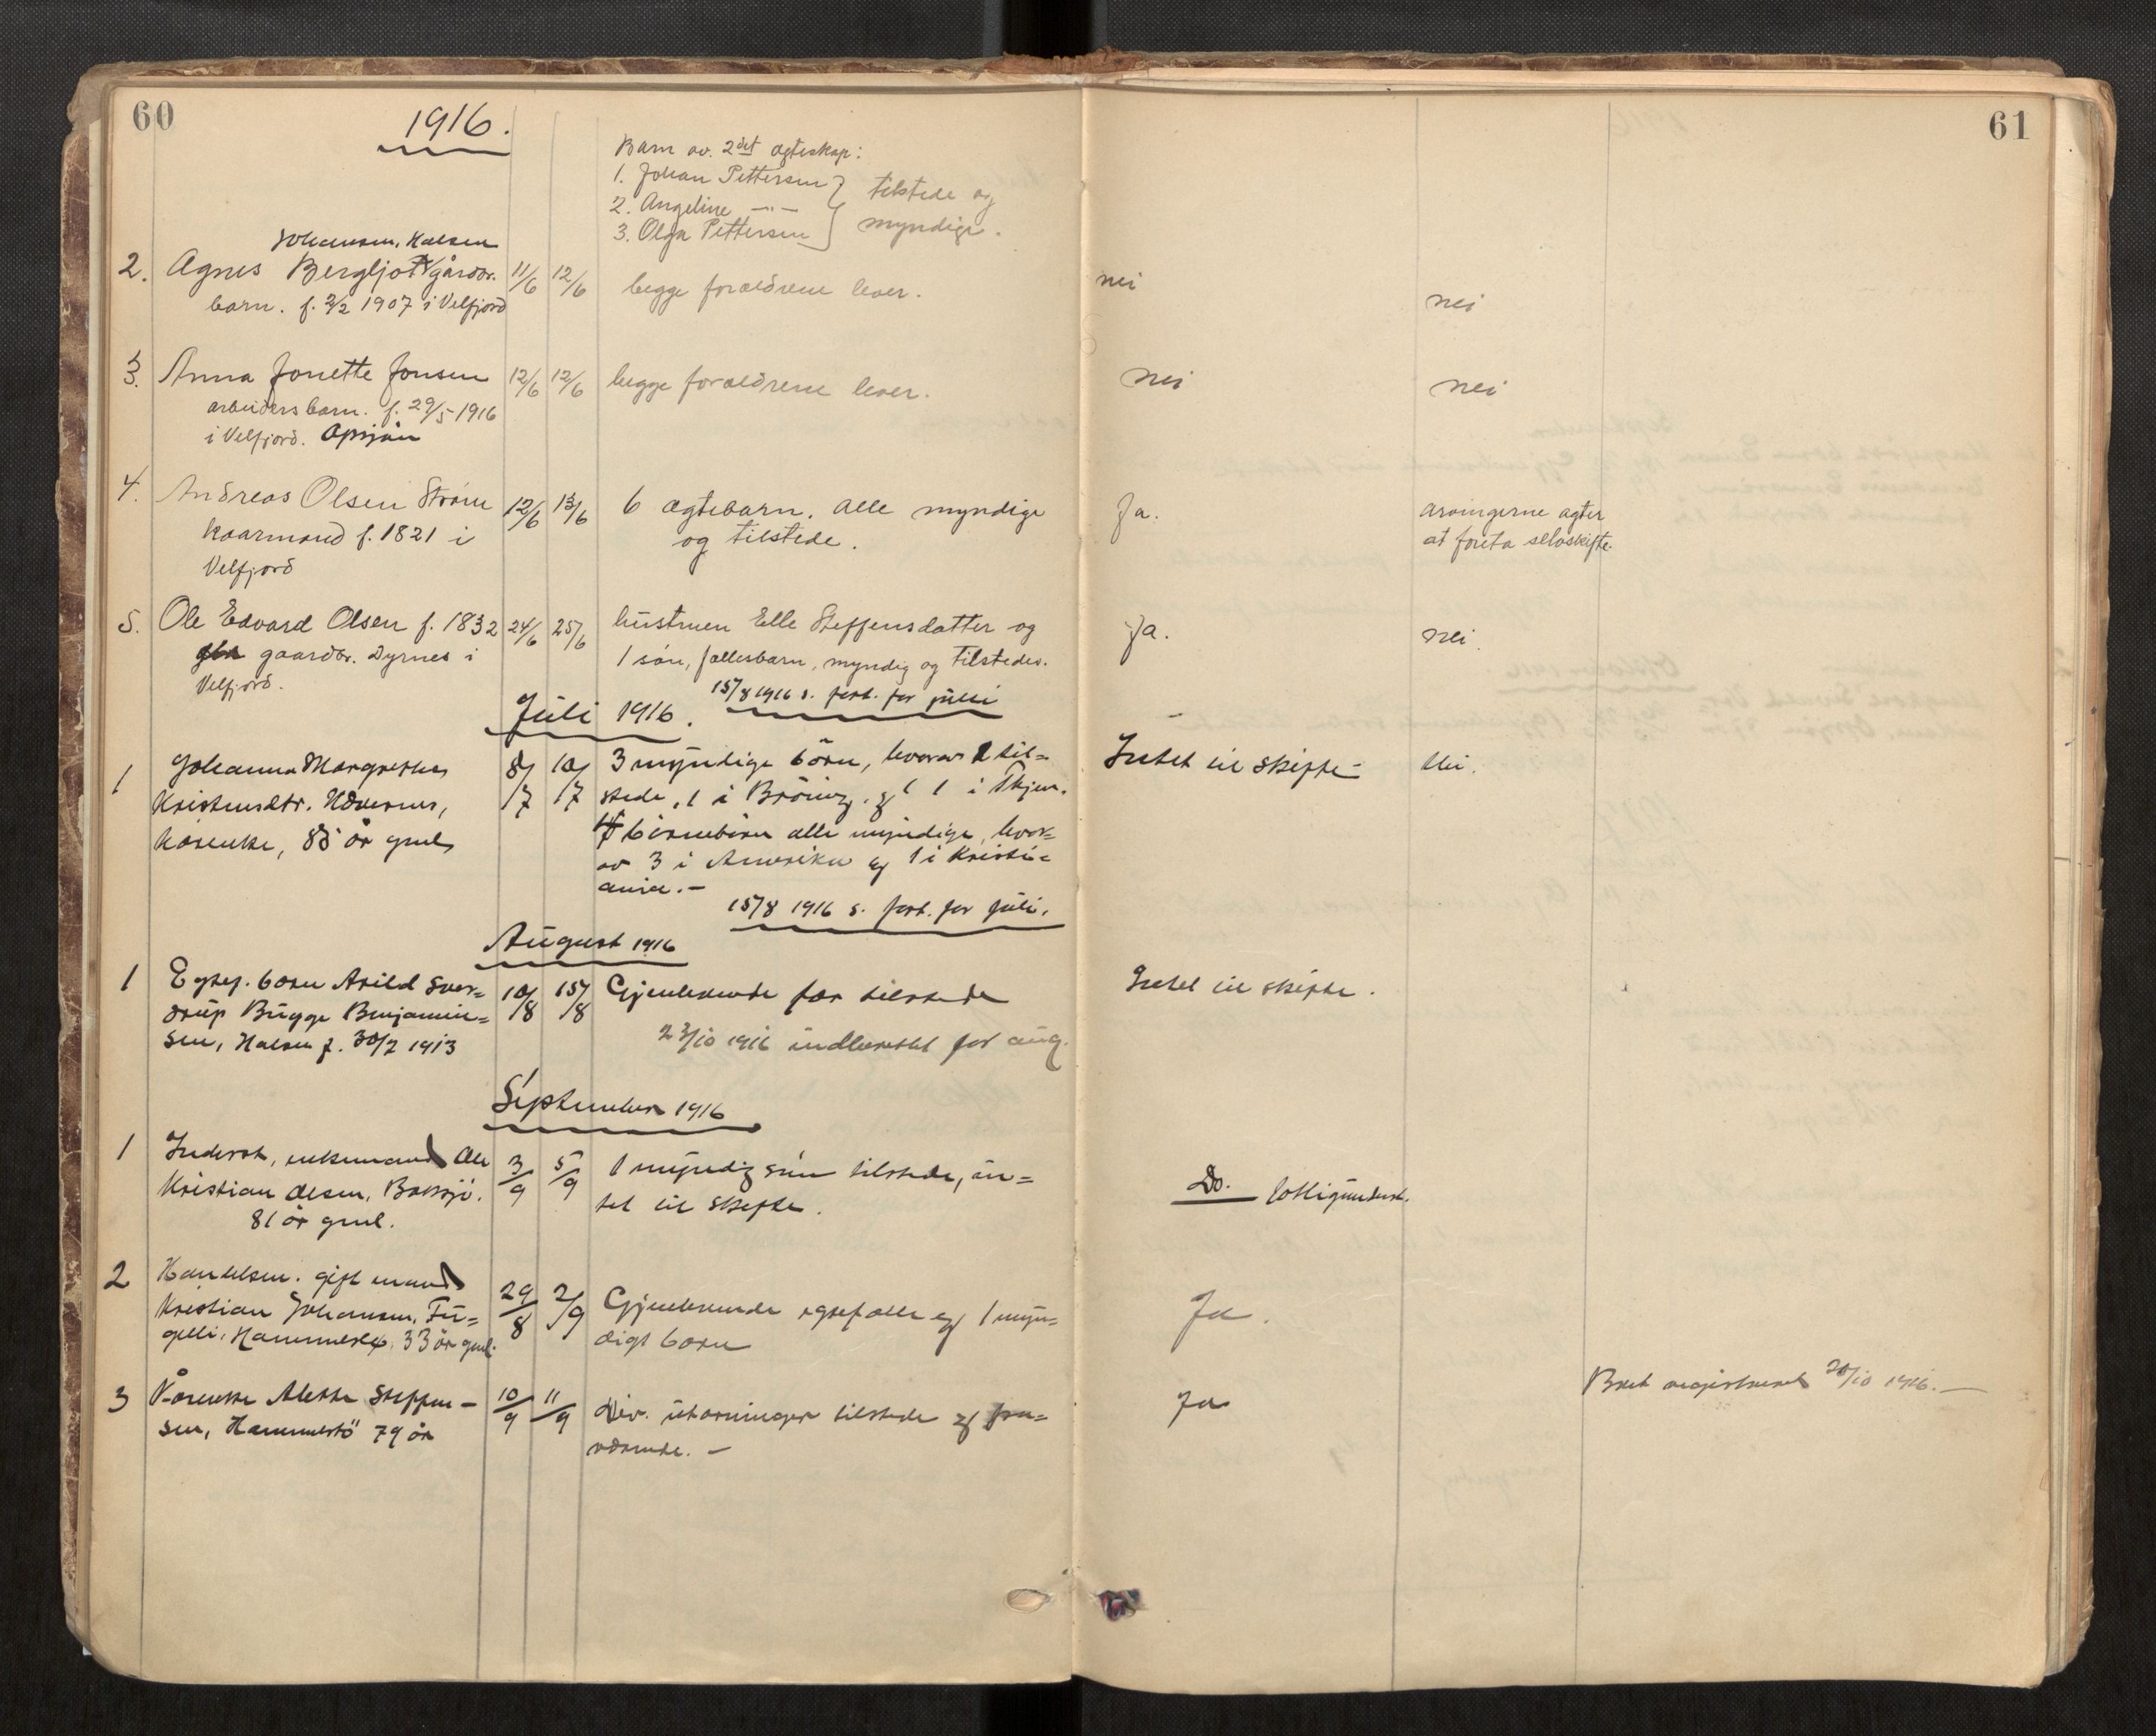 60
1916.
61
Barn av. 2det ægteskap:
1. Johan Pettersen
2. Angeline —"—
3. Olga Pettersen
tilstede og
myndige.
Johansen, Halsen
2. Agnes Bergljot gårdbr. 11/6 12/6 begge forældrene lever. nei nei
barn. f. 2/2 1907 i Velfjord
3. Anna Jonette Jonsen 12/6 12/6 begge forældrene lever. nei nei
arbeidersbarn. f. 29/5 1916
i Velfjord.
4. Andreas Olsen Strøm 12/6 13/6 6 ægtebarn. alle myndige Ja. arvingerne agter
kaarmand f. 1821 i og tilstede. at foreta selvskifte.
Velfjord
5. Ole Edvard Olsen f. 1832 24/6 25/6 hustruen Elle Steffensdatter og Ja. nei.
gaardbr. Dyrnes i 1 søn, fællesbarn, myndig og tilstede.
Velfjord.
15/8 1916 s. fort. for
Juli 1916.
1 Johanna Margrethe 8/7 10/7 3 myndige børn, hvorav 1 til= Intet til skifte. Nei.
Kristensdtr. stede, 1 i Brönö, og 1 i
kårenke, år gml. børnebörn alle myndige, hvor=
av 3 i Amerika og 1 i Kristi=
ania.—
15/8 1916 s. fort. for juli.
August 1916
1 Egtef. barn Arild Sver= 10/8 15/8 Gjenlevende far tilstede Intet til skifte.
drup Bugge Benjamin=
sen, Halsen f. 30/7 1913
23/10 1916 indberettet for aug.
September 1916
1 Inderst, enkemand Ole 3/9 5/9 1 myndig søn tilstede, in= Do. fattigunderst.
Kristian Olsen, tet til skifte.
81 år gml.
2 Handelsm. gift mand 29/8 2/9 Gjenlevende egtefælle og 1 myn= Ja.
Kristian Johansen, Fu= digt barn
gelli, 33 år gml.
3 Kårenke Alette Steffen- 10/9 11/9 Div. utarvinger tilstede og fra= Ja
sen, Hammerlö 79 år værende.—
Boet registreret 20/10 1916.—